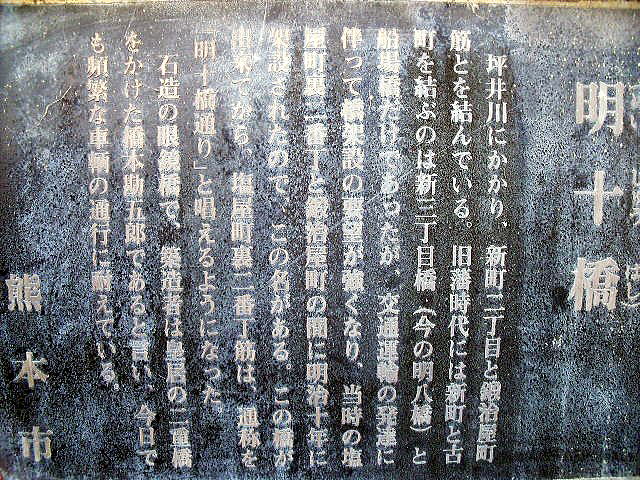 明十橋
坪井川にかかり、新町二丁目と鍛冶屋町
筋とを結んでいる。旧藩時代には新町と古
町を結ぶのは新三丁目橋（今の明八橋）と
船場橋だけであったが、交通運輸の発達に
伴って橋架設の要望が強くなり、当時の塩
屋町裏二番丁と鍛冶屋町の間に明治十年に
架設されたので、この名がある。この橋が
出来てから、塩屋町裏二番丁筋は、通称を
「明十橋通り」と唱えるようになった。
石造の眼鏡橋で、築造者は皇居の二重橋
をかけた橋本勘五郎であると言い、今日で
も頻繁な車輌の通行に耐えている。
熊本市